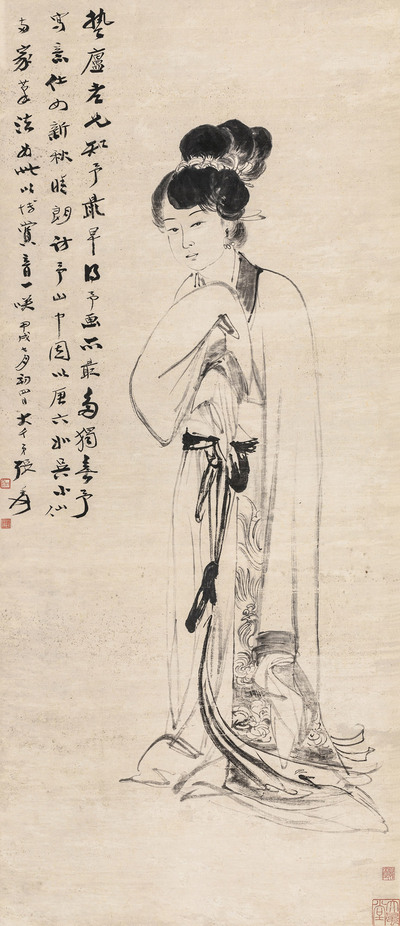 蟄廬老兄知予最早得予画亦最多獨喜予
寫意仕女新秋晴朗訪予山中因以唐六如吳小仙
兩家筆法為此以博賞音一咲甲戌七月初四日大千弟張爰
大風堂